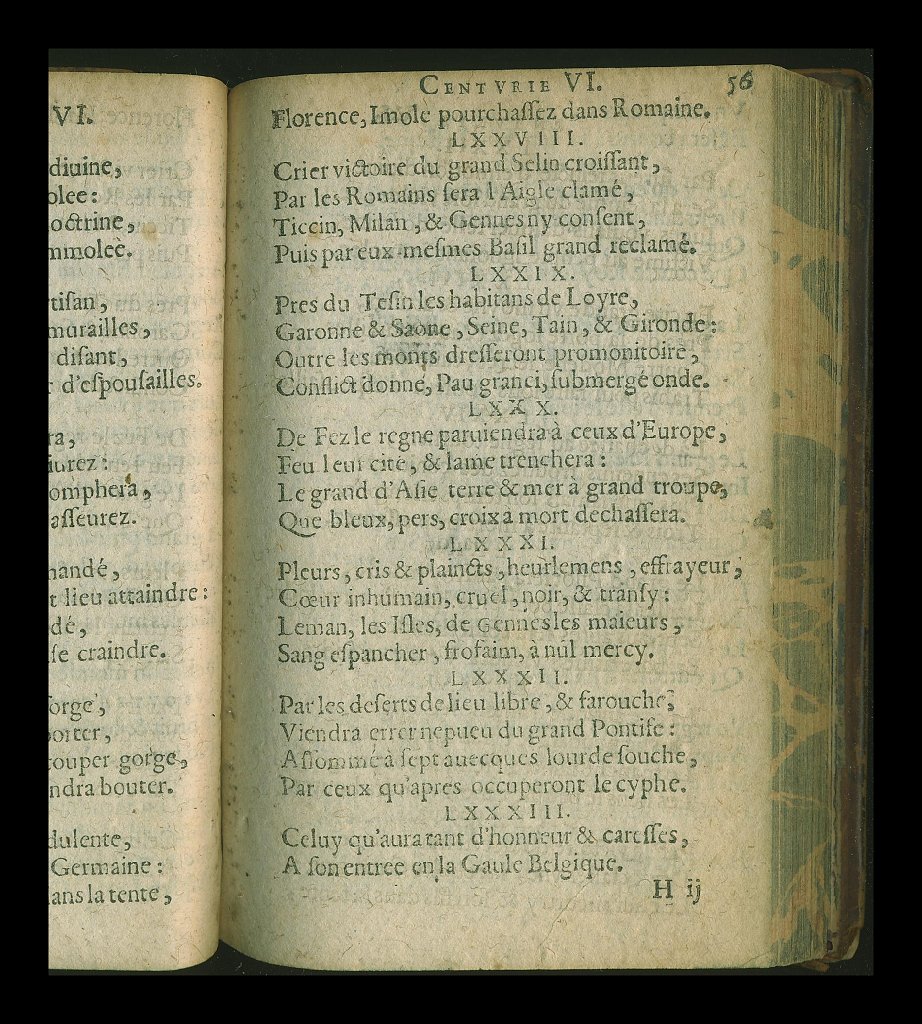 VI.
diuine,
olee:
octrine,
mmolee.
tisan,
murailles,
disant,
d'espousailles.
ra,
iurez:
omphera,
asseurez.
mandé,
t lieu attaindre:
dé,
se craindre.
forge,
porter,
couper gorge,
ndra bouter.
dulente,
Germaine:
ans la tente,
CENTVRIE VI. 56
Florence, Imole pourchassez dans Romaine.
LXXVIII.
Crier victoire du grand Selin croissant,
Par les Romains sera l'Aigle clamé,
Ticcin, Milan, & Gennes ny consent,
Puis par eux-mesmes Basil grand reclamé.
LXXIX.
Pres du Tesin les habitans de Loyre,
Garonne & Saone, Seine, Tain, & Gironde:
Outre les monts dresseront promonitoire,
Conflict donné, Pau granci, submergé onde.
LXXX.
De Fez le regne paruiendra à ceux d'Europe,
Feu leur cité, & lame trenchera:
Le grand d'Asie terre & mer à grand troupe,
Que bleux, pers, croix à mort dechassera.
LXXXI.
Pleurs, cris & plaincts, heurlemens, effrayeur,
Cœur inhumain, cruel, noir, & transy:
Leman, les Isles, de Gennes les maieurs,
Sang espancher, frofaim, à nul mercy.
LXXXII.
Par les deserts de lieu libre, & farouche,
Viendra errer nepueu du grand Pontife:
Assommé à sept auecques lourde souche,
Par ceux qu'apres occuperont le cyphe.
LXXXIII.
Celuy qu'aura tant d'honneur & caresses,
A son entree en la Gaule Belgique.
H ij